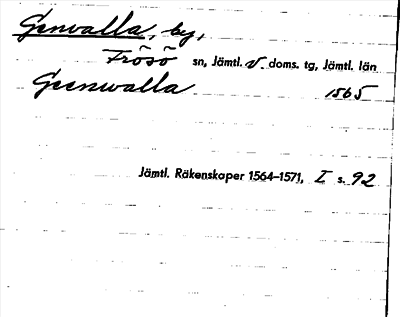 Genvalla, by,
Frösö sn, Jämtl. V. doms. tg, Jämtl. län
Geenwalla 1565
Jämtl. Räkenskaper 1564–1571, I s. 92